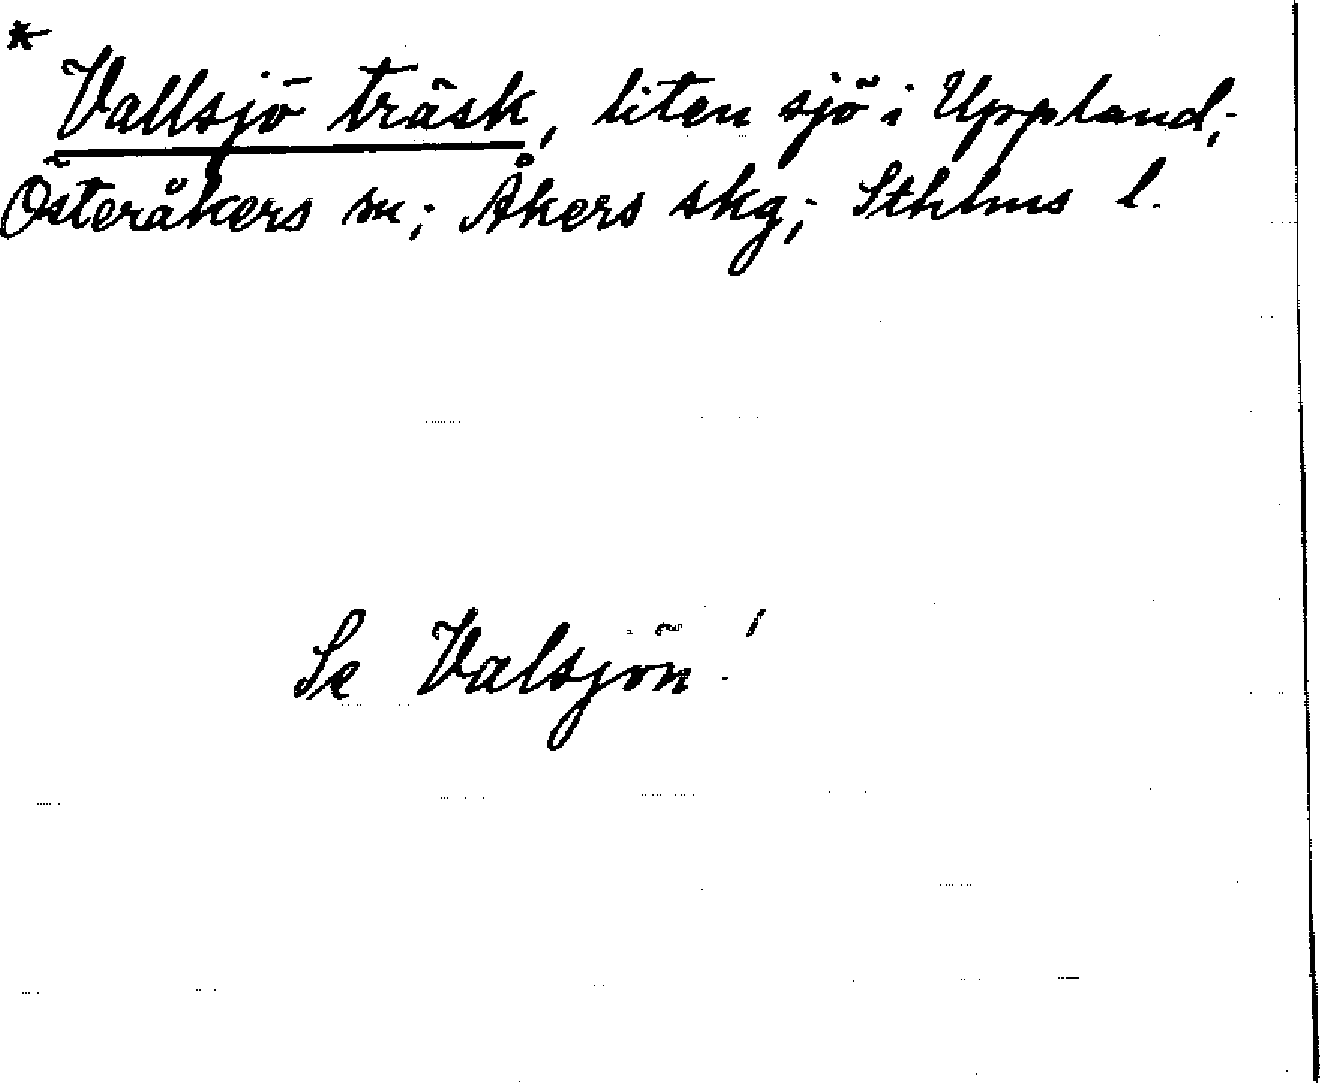 *
Vallsjö träsk, liten sjö i Uppland;
Österåkers sn; Åkers skg; Sthlms l.
Se Valsjön!